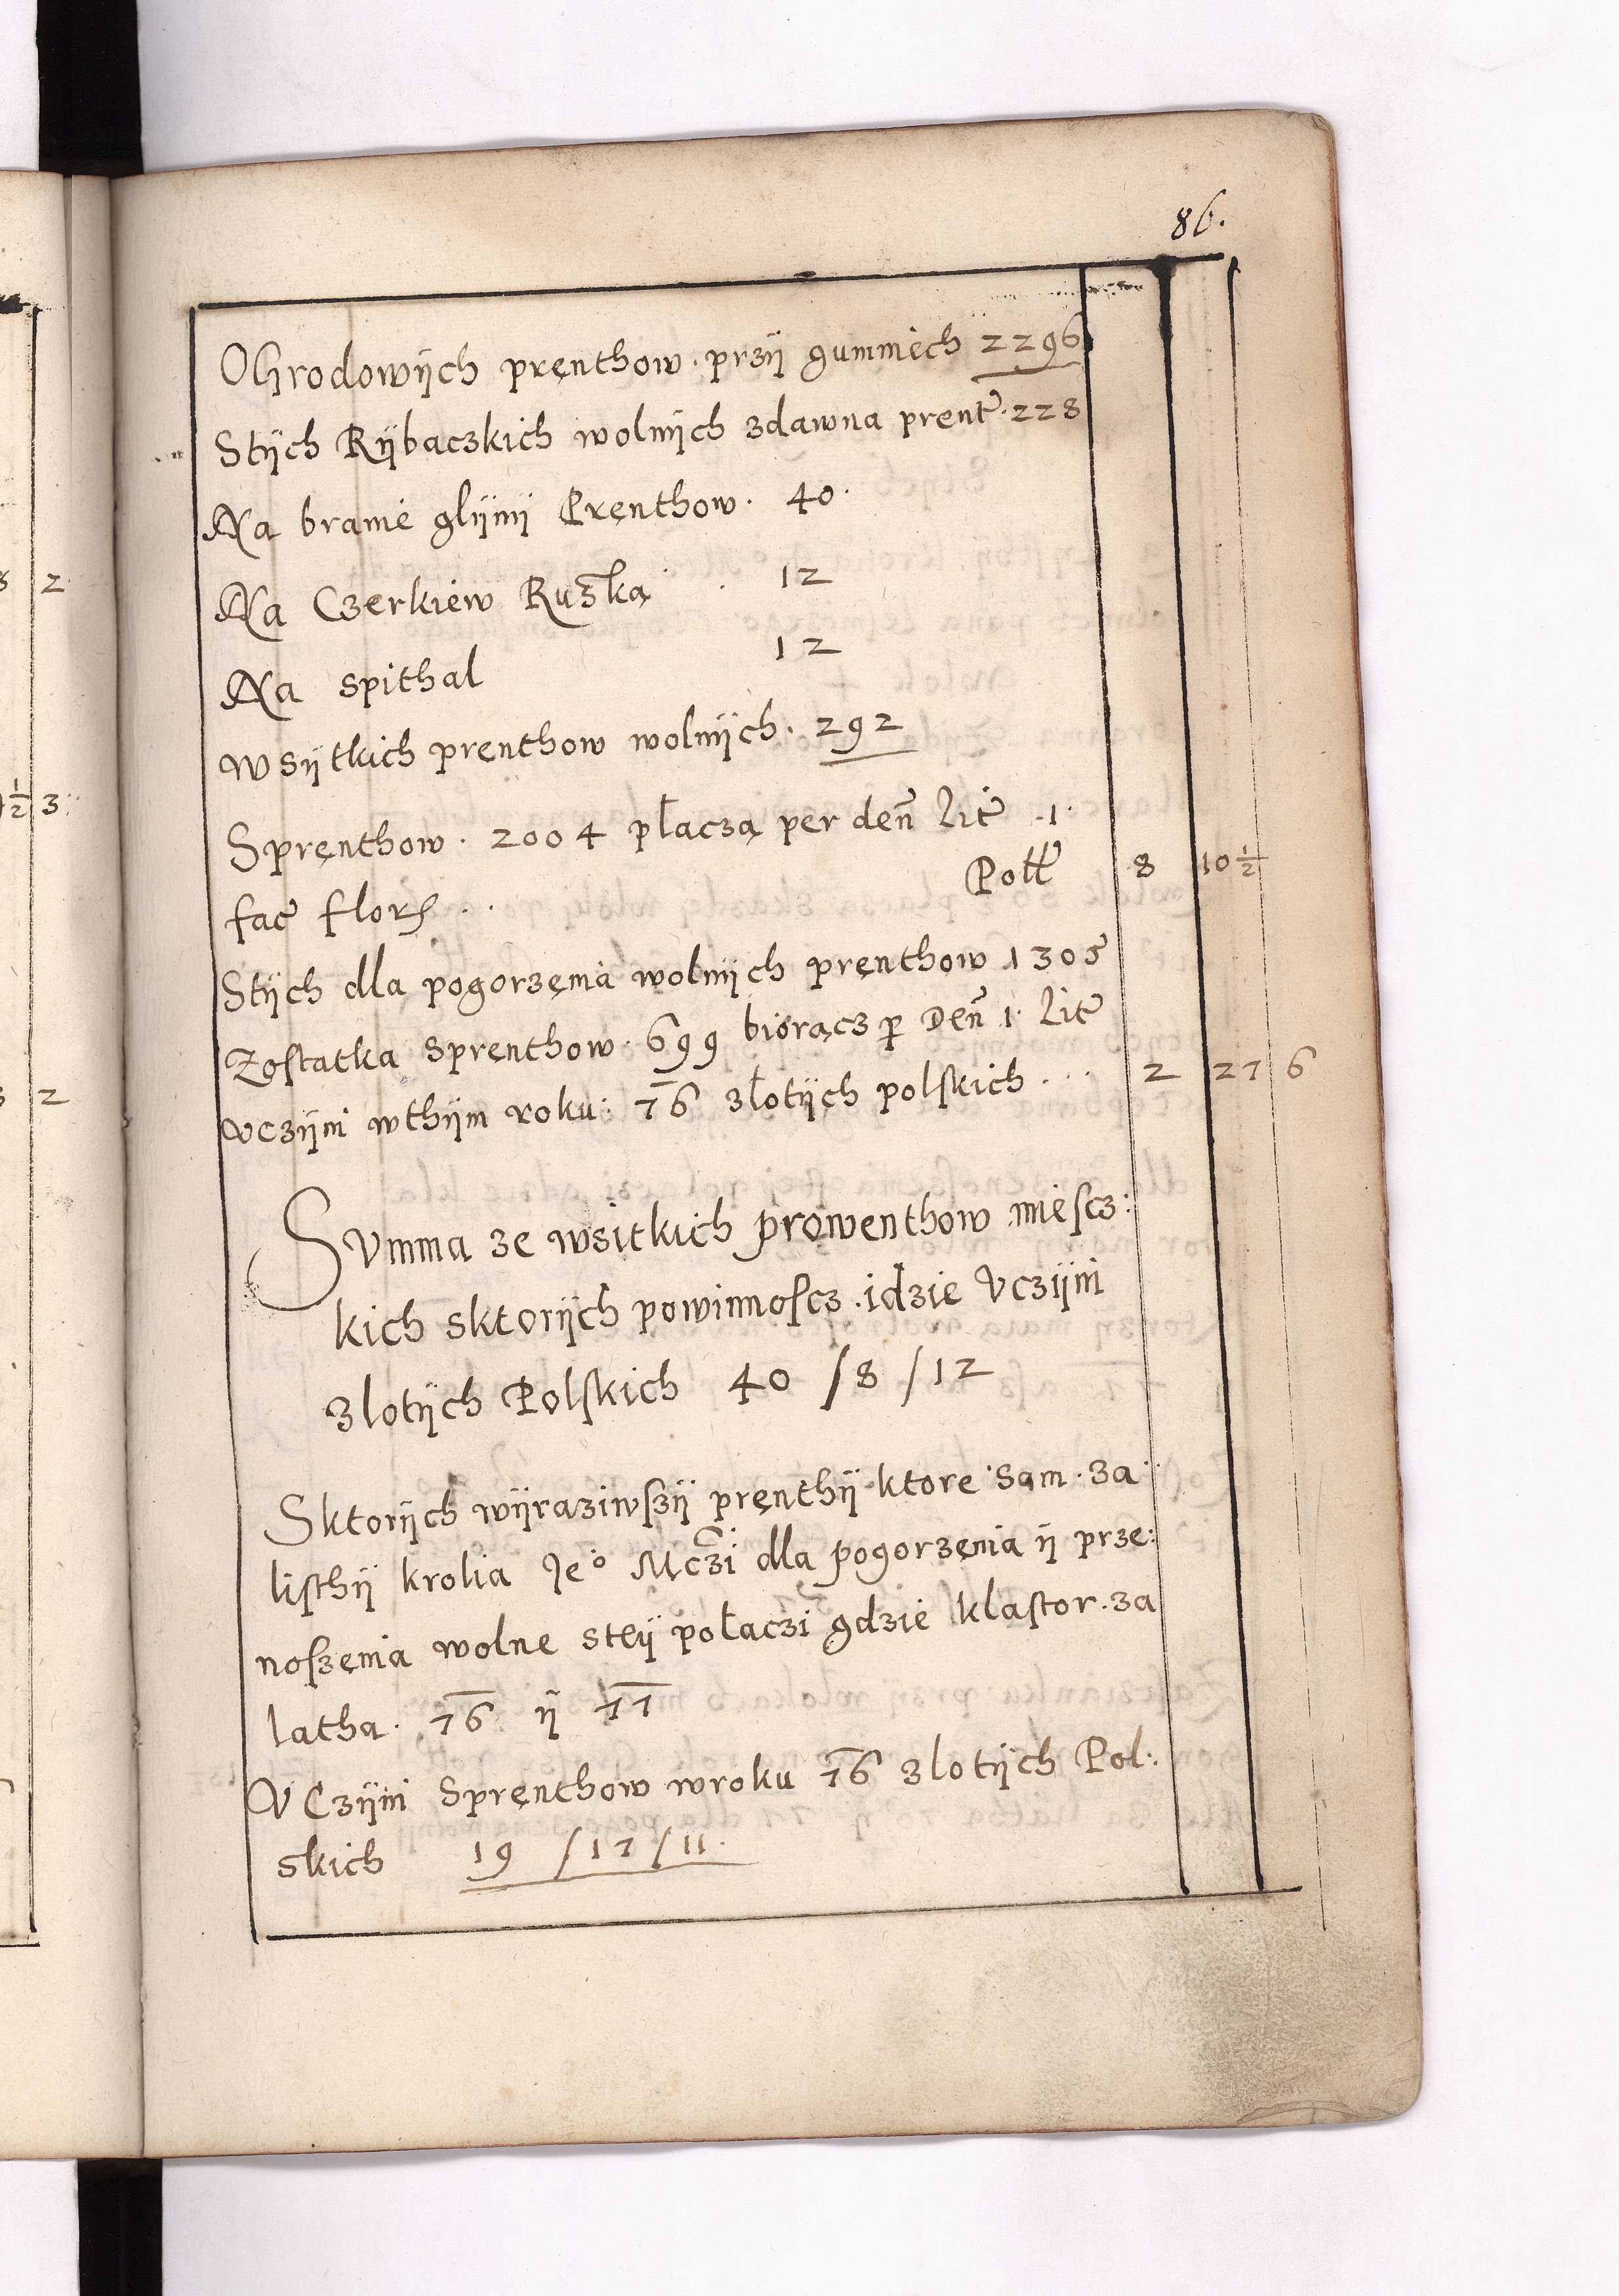 86.
Ohrodowÿch pręnthow przÿ gumniech 2296
Stÿch Rÿbaczkich wolnÿch zdawna prent. 228
Na bramę glÿnÿ Pręnthow. 40.
Na Czerkiew Ruzką . 12
Na spithal 12
Wsÿtkich prenthow wolnÿch. 292
Spręnthow. 2004 płaczą per den lit .1.
fac flor . . Poll 8 10½
Stÿch dla pogorzęnia wolnÿch pręnthow 1305
Zostatka sprenthow. 699 biorącz p den 1. lit
vczÿni wthÿm roku: 76 złotÿch polskich . . . 2 27 6
Svmma ze wsitkich prowenthow miescz:
kich sktorÿch powinnoscz. idzie Vczÿni
zlotÿch Polskich 40 / 8 / 12
Sktorÿch wÿraziwszÿ pręnthÿ ktore sąm. za
listhÿ krolia Jeº Mczi dla pogorzęnia ÿ prze:
noszęnia wolne steÿ połaczi gdzie klastor. za
latha. 76 ÿ 77
VCzÿni Spręnthow wroku 76 zlotÿch Pol:
skich 19 / 17 / 11.
3 2
½ 3
2